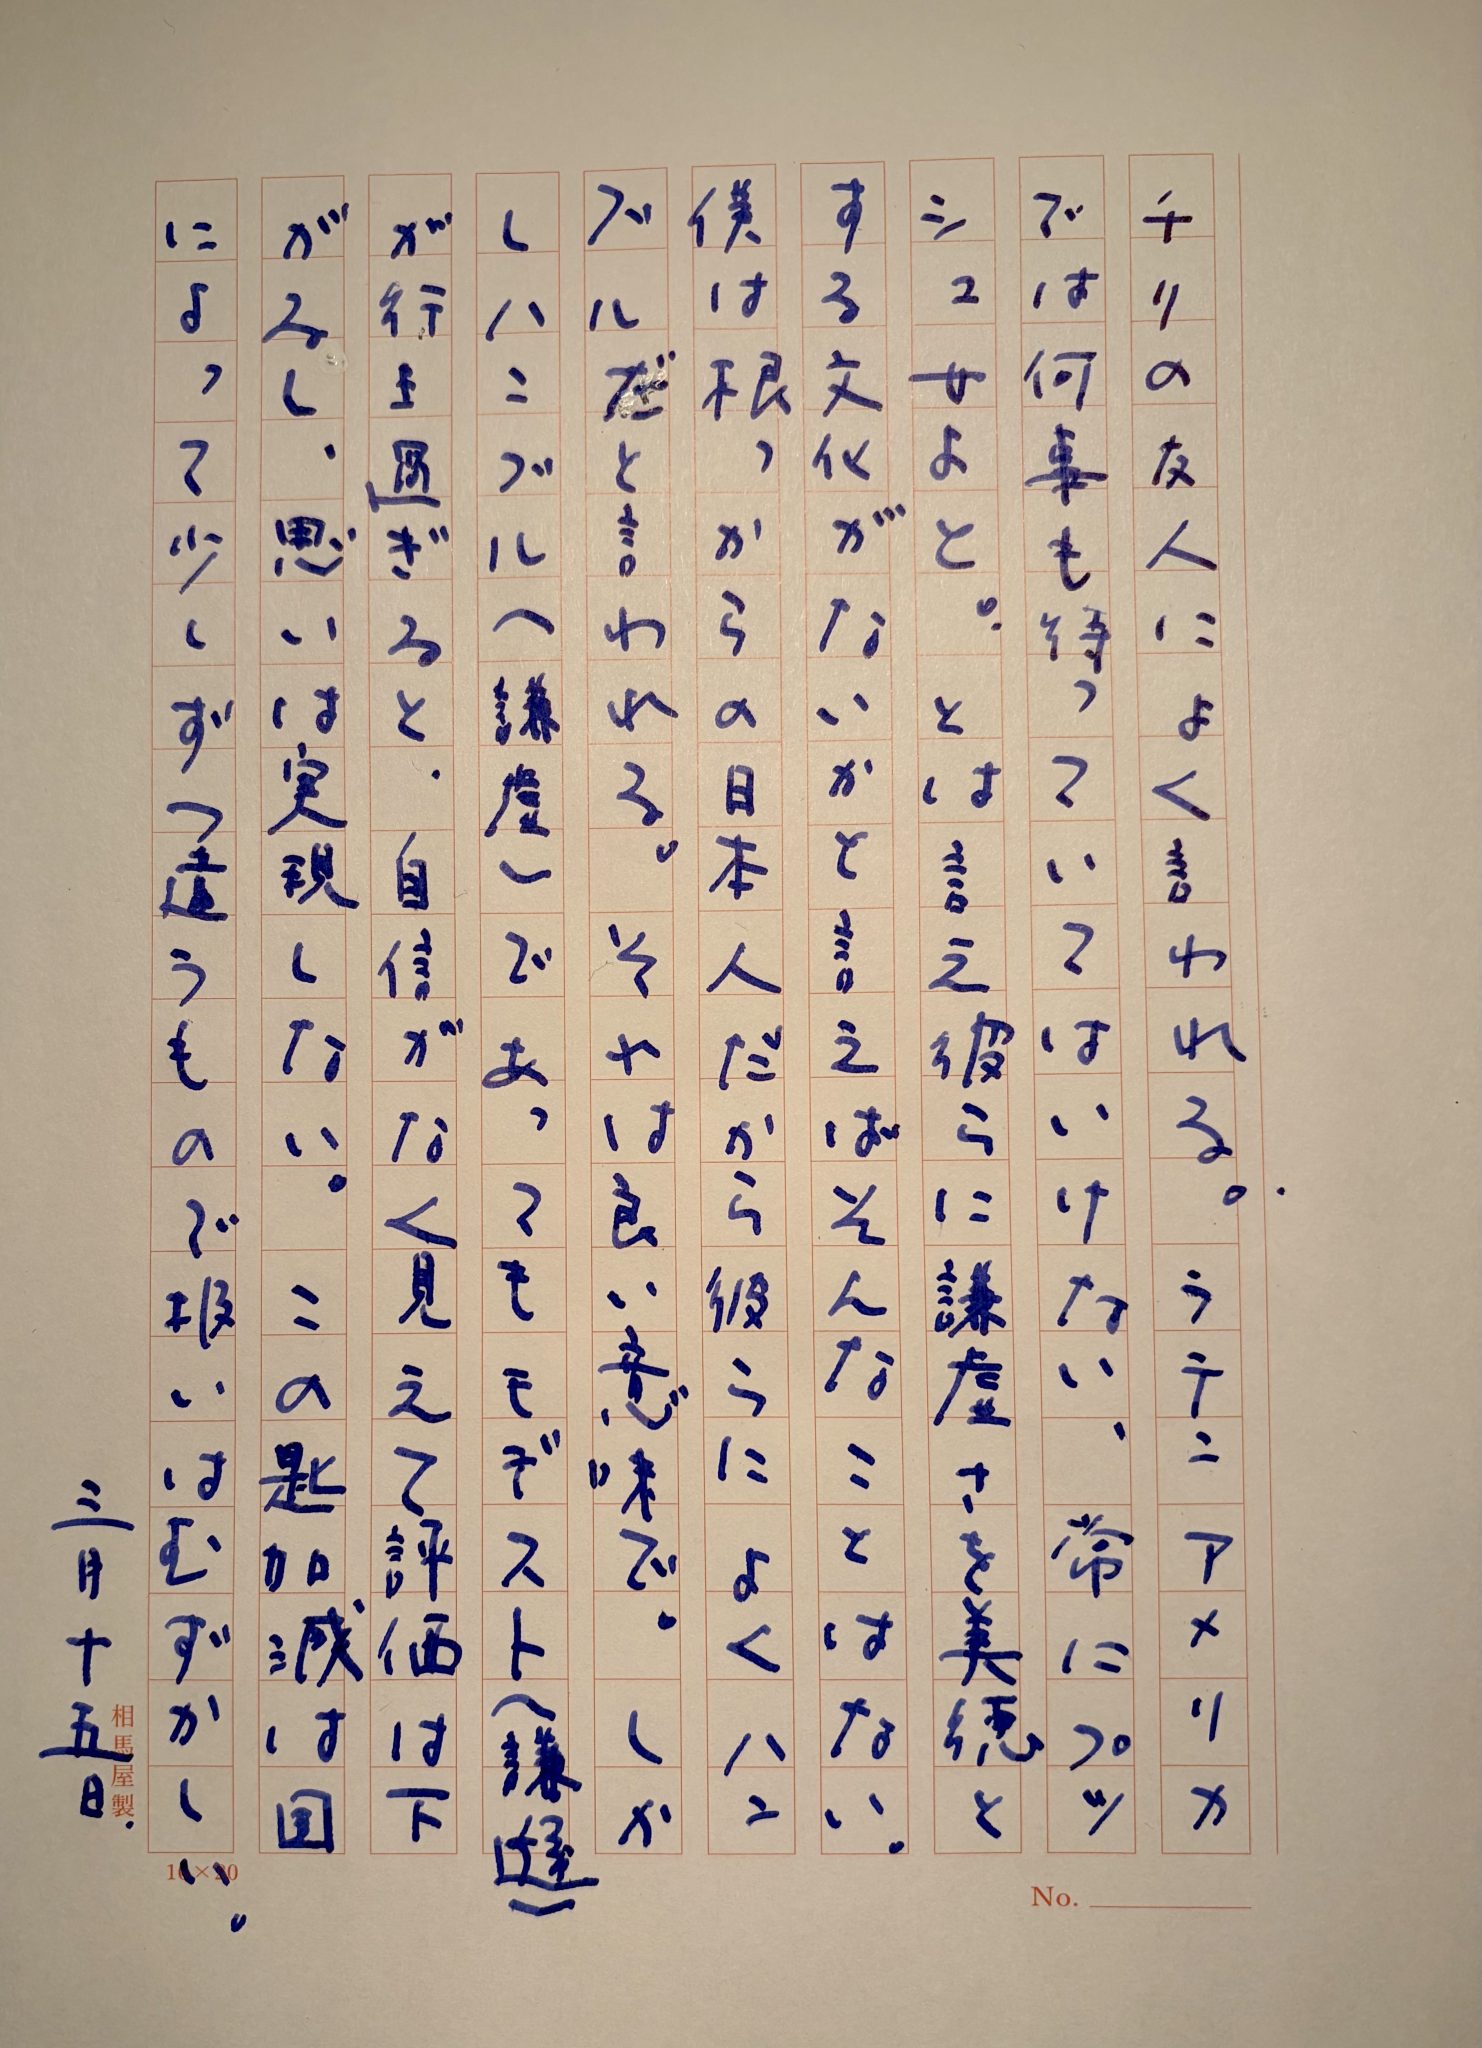 チリの友人によく言われる。ラテンアメリカ
では何事も待っていてはいけない、常にプッ
シュせよと。とは言え彼らに謙虚さを美徳と
する文化がないかと言えばそんなことはない。
僕は根っからの日本人だから彼らによくハン
ブルだと言われる。そやは良い意味で。しか
しハンブル(謙虚)であってもモデスト(謙遜)
が行き過ぎると、自信がなく見えて評価は下
がるし、思いは実現しない。この匙加減は国
によって少しずつ違うもので扱いはむずかしい。
三月十五日.
相馬屋製
10×20
No.